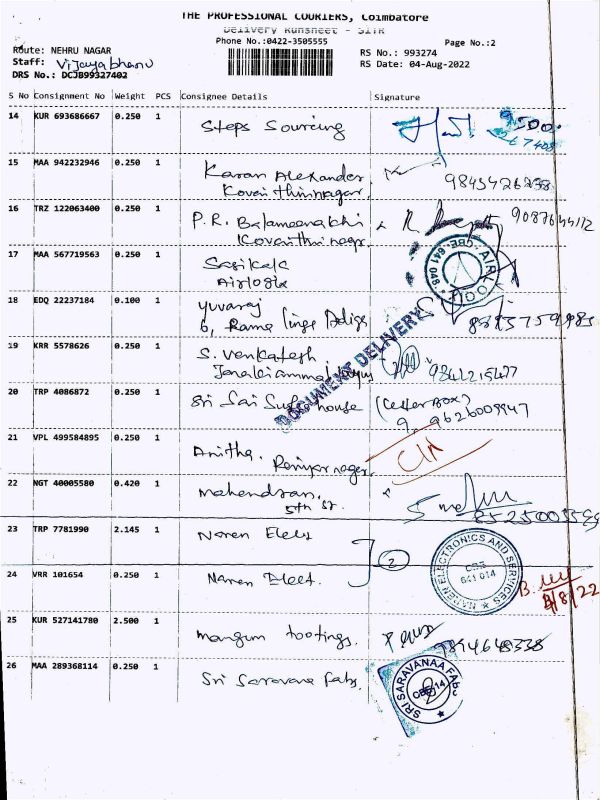 THE PROFESSIONAL COURIERS, Coimbatore
Delivery Runsheet - SITR
Phone No.:0422-3505555
Page No.:2
Route: NEHRU NAGAR
RS No.: 993274
Staff: Vijayabhanu
RS Date: 04-Aug-2022
DRS No.: DCJB99327402
S No Consignment No Weight PCS Consignee Details Signature
14 KUR 693686667 0.250 1 Steps Sourcing
15 MAA 942232946 0.250 1 Karan Alexander
Kovai Thirunagar
16 TRZ 122063400 0.250 1 P.R. Balameenakhi
Kovai Thirunagar
17 MAA 567719563 0.250 1 Sasikala
Airlogix
CBE-641 048 AIRLOGIX
18 EDQ 22237184 0.100 1 Yuvaraj
6, Rama
19 KRR 5578626 0.250 1 S. Venkatesh
9841215477
DOCUMENT DELIVERY
20 TRP 4086872 0.250 1 Sri Sai house (Letter Box)
9626009947
21 VPL 499584895 0.250 1 Anitha. Periyar nagar
22 NGT 40005580 0.420 1 Mahendran,
5th st.
23 TRP 7781990 2.145 1 Naren Elect
2
NAREN ELECTRONICS AND SERVICES
CBE
641 014
24 VRR 101654 0.250 1 Naren Elect.
/8/22
25 KUR 527141780 2.500 1 toolings.
26 MAA 289368114 0.250 1 Sri Saravana Fabs.
SRI SARAVANAA FABS